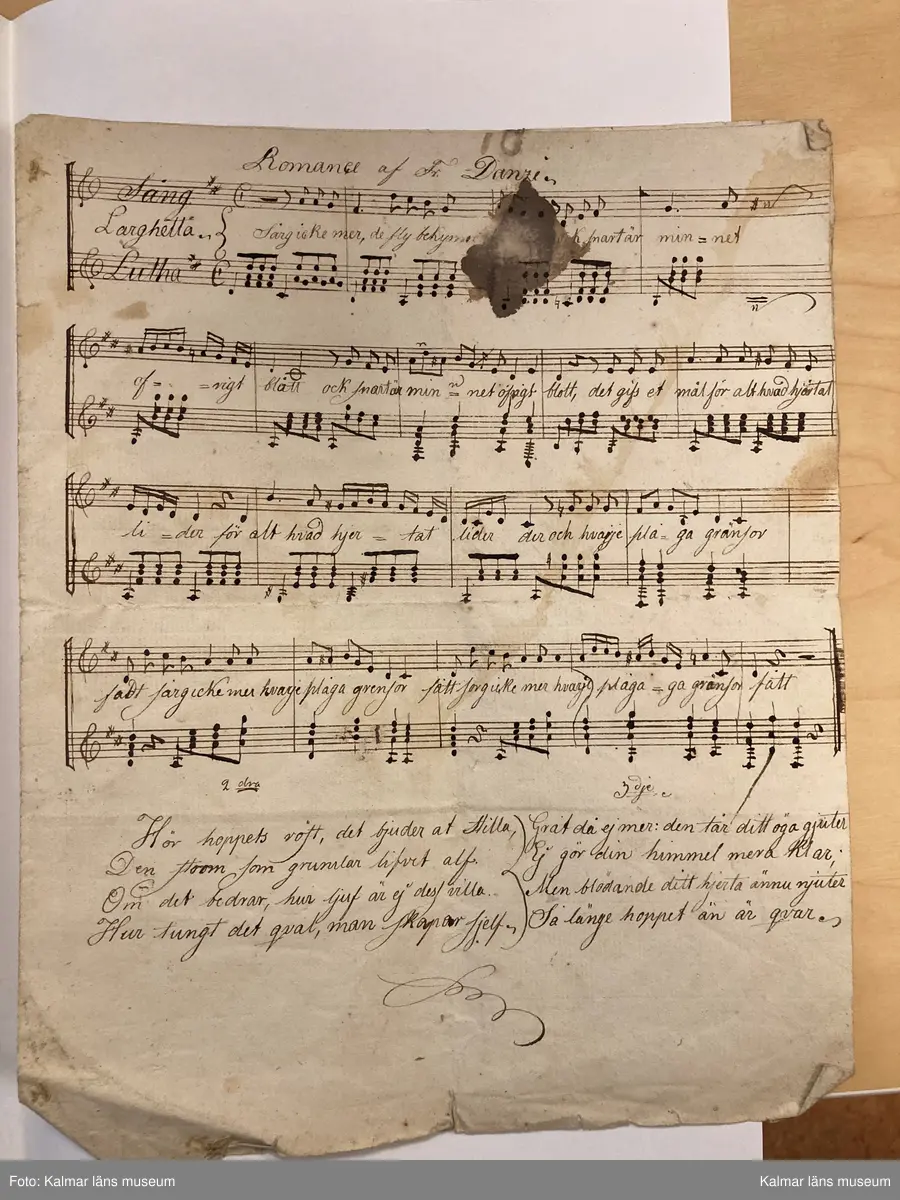 18
Romance af Fr. Danzi
Sång
Larghetta
Sörgicke mer, de fly snart är min = net
Lutha
of = = rigt blått ock snart är min = net öfrigt blott, det gifs et mål för alt hvad hjärtat
li = der för alt hvad hjer = tat lider der och hvarje plå = ga gränsor
sadt sörgicke mer hvarje plåga grensor satt sörgicke mer hvarje plåga = ga gränsor satt
2 dra
3 dje
Hör hoppets röst, det bjuder at stilla,
Den storm som grumlar lifvet alf.
Om det bedrar, hur ljuf är ej dess villa..
Hur tungt det qval, man skapar sjelf.
Gråt då ej mer: den tår ditt öga gjuter
Ej gör din himmel mera klar;
Men blödande ditt hjerta ännu njuter
Så länge hoppet än är qvar.
Foto: Kalmar läns museum
Kalmar läns museum